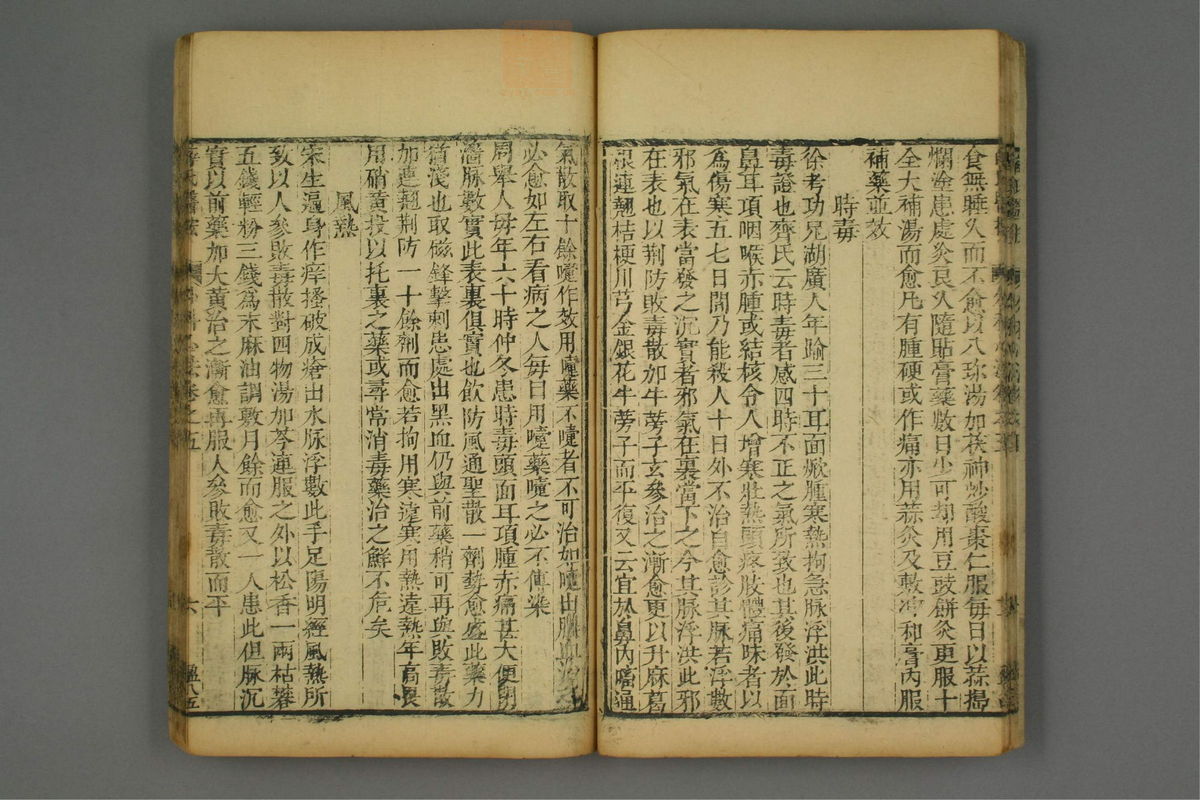 食無睡久而不愈以八珎湯加茯神炒酸棗仁服每日以蒜搗
爛塗患處灸良久隨貼膏藥數日少可却用豆豉餅灸更服十
全大補湯而愈凡有腫硬或作痛亦用蒜灸及敷冲和膏內服
補藥並效
時毒
徐考功兄湖廣人年踰三十耳面㷉腫寒熱拘急脉浮洪此時
毒證也齊氏云時毒者感四時不正之氣所致也其後發於面
鼻耳項咽喉赤腫或結核令人增寒壯熱頭疼肢體痛昧者以
為傷寒五七日間乃能殺人十日外不治自愈診其脉若浮數
邪氣在表當發之沉實者邪氣在裏當下之今其脉浮洪此邪
在表也以荆防敗毒散加牛蒡子玄參治之漸愈更以升麻葛
根連翹桔梗川芎金銀花牛蒡子而平復又云宜於鼻內嚏通
氣散取十餘嚏作效用嚏藥不嚏者不可治如嚏出膿血
必愈如左右看病之人每日用嚏藥嚏之必不傳染
周舉人母年六十時仲冬患時毒頭面耳項腫赤痛甚大便閉
濇脉數實此表裏俱實也飲防風通聖散一劑勢愈盛此藥力
猶淺也取磁鋒擊刺患處出黑血仍與前藥稍可再與敗毒散
加連翹荆防一十餘劑而愈若拘用寒遠寒用熱遠熱年高畏
用硝黃投以托裏之藥或尋常消毒藥治之鮮不危矣
風熱
宋生遍身作痒搔破成瘡出水脉浮數此手足陽明經風熱所
致以人參敗毒散對四物湯加芩連服之外以松香一兩枯礬
五錢輕粉三錢為末麻油調敷月餘而愈又一人患此但脉沉
實以前藥加大黃治之漸愈再服人參敗毒散而平
卷之五
六